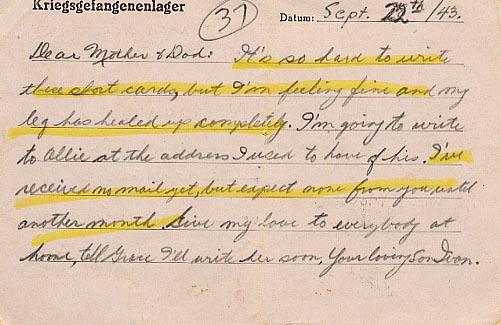 Kriegsgefangenenlager
37
Datum: Sept. 22th /43.
Dear Mother & Dad: It's so hard to write
these short cards, but I'm feeling fine and my
leg has healed up completely. I'm going to write
to Allie at the address I used to have of his. I've
received no mail yet, but expect none from you until
another month. Give my love to everybody at
home, tell Grace I'll write her soon, Your loving Son Ivan.